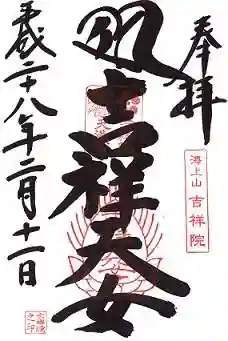 奉拝
海上山 吉祥院
吉祥天女
平成二十八年十二月十一日